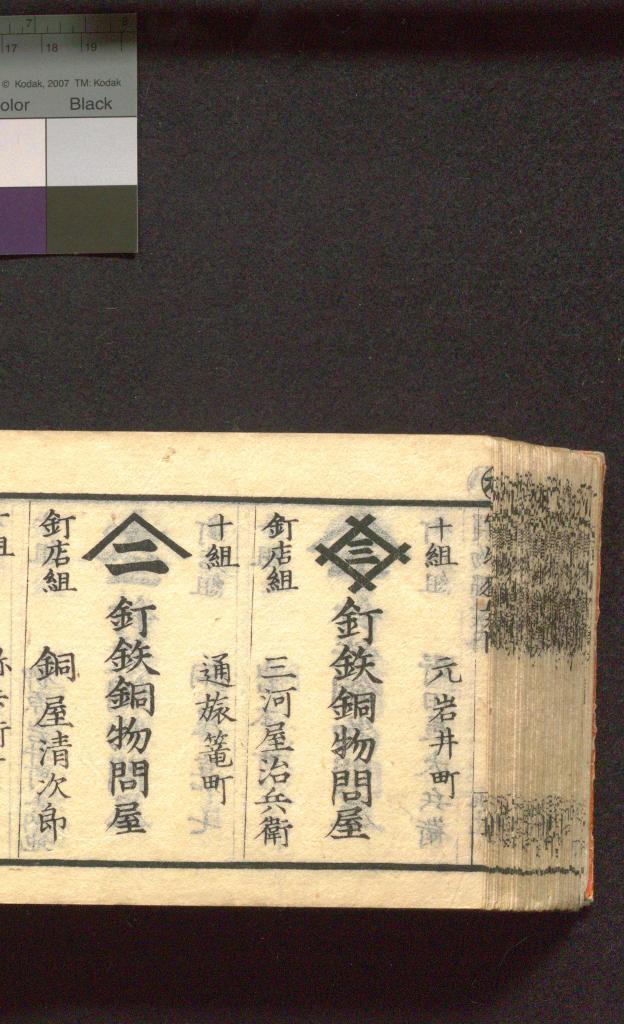 7 8
17 18 19
© Kodak, 2007 TM: Kodak
olor Black
十組 元岩井町
三
釘鉄銅物問屋
釘店組 三河屋治兵衛
十組 通旅篭町
二
釘鉄銅物問屋
釘店組 銅屋清次郎
組